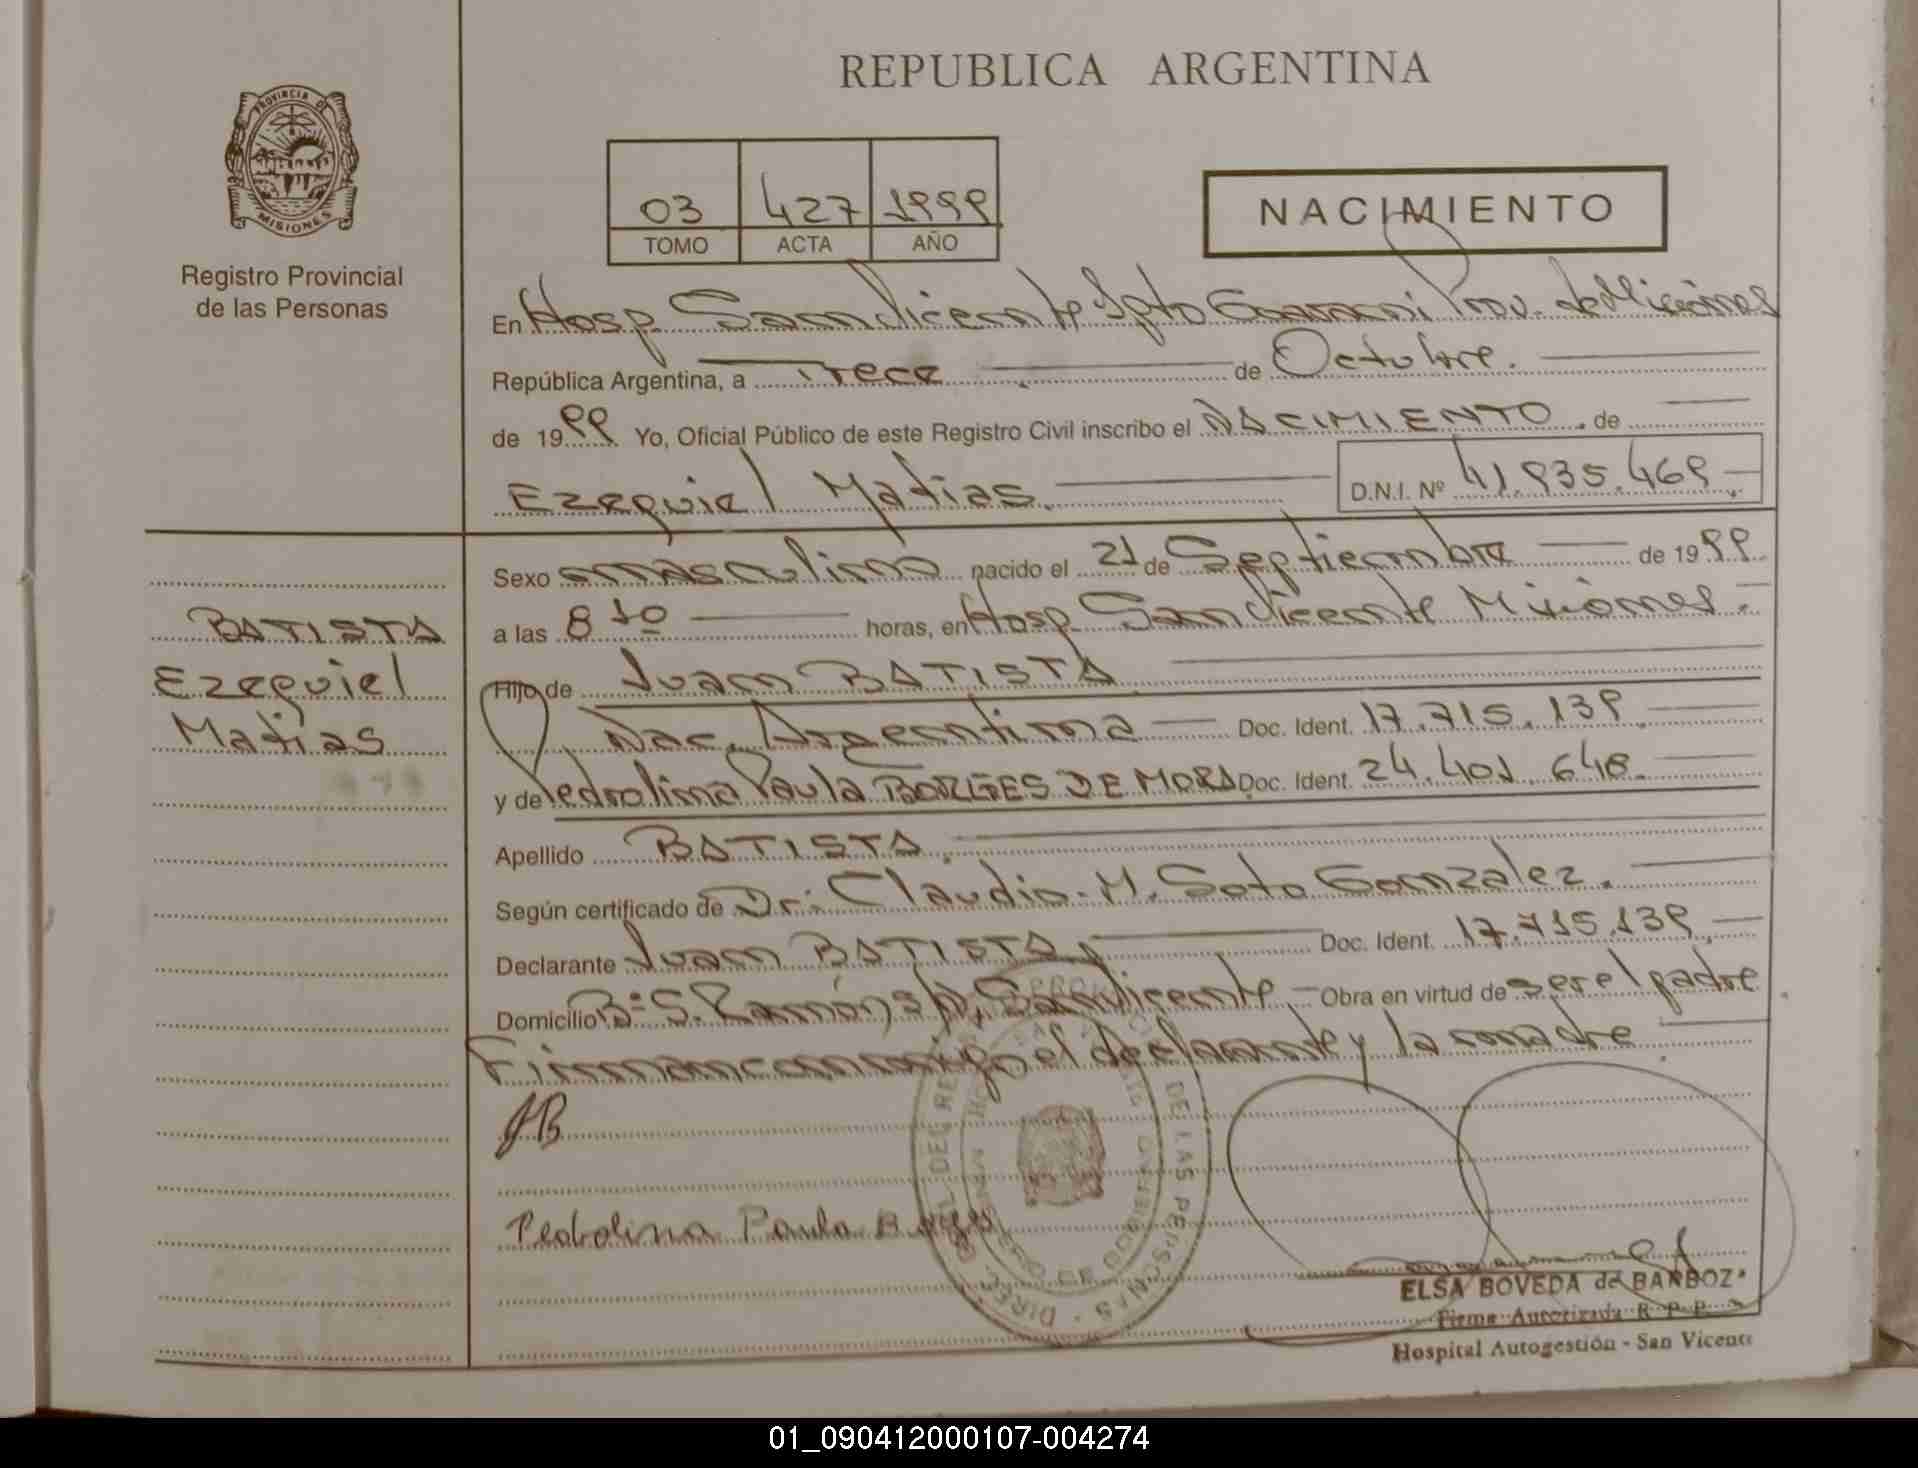 REPUBLICA ARGENTINA
PROVINCIA DE MISIONES
Registro Provincial
de las Personas
03 427 1999
TOMO ACTA AÑO
NACIMIENTO
En Hosp. San Vicente Dpto Guarani Prov. de Misiones
República Argentina, a Trece de Octubre.
de 1999 Yo, Oficial Público de este Registro Civil inscribo el NACIMIENTO. de
Ezequiel Matias. D.N.I. Nº 41.935.469
Sexo masculino nacido el 21 de Septiembre de 1999
a las 8 10 horas, en Hosp. San Vicente Misiones.
BATISTA
Ezequiel
Matias
Hijo de Juan BATISTA
Nac. Argentina Doc. Ident. 17.715.139
y de Pedrolina Paula BORGES DE MORA Doc. Ident. 24.401.648.
Apellido BATISTA.
Según certificado de Dr: Claudio. M. Soto Gonzalez.
Declarante Juan BATISTA, Doc. Ident. 17.715.139,
Domicilio Bº S. Ramón San Vicente, Obra en virtud de ser el padre
Firman conmigo el declarante y la madre.
JB
Pedrolina Paula Borges
ELSA BOVEDA de BARBOZA
Firma Autorizada R. P. P.
Hospital Autogestión - San Vicente
DE LAS PERSONAS
01_090412000107-004274